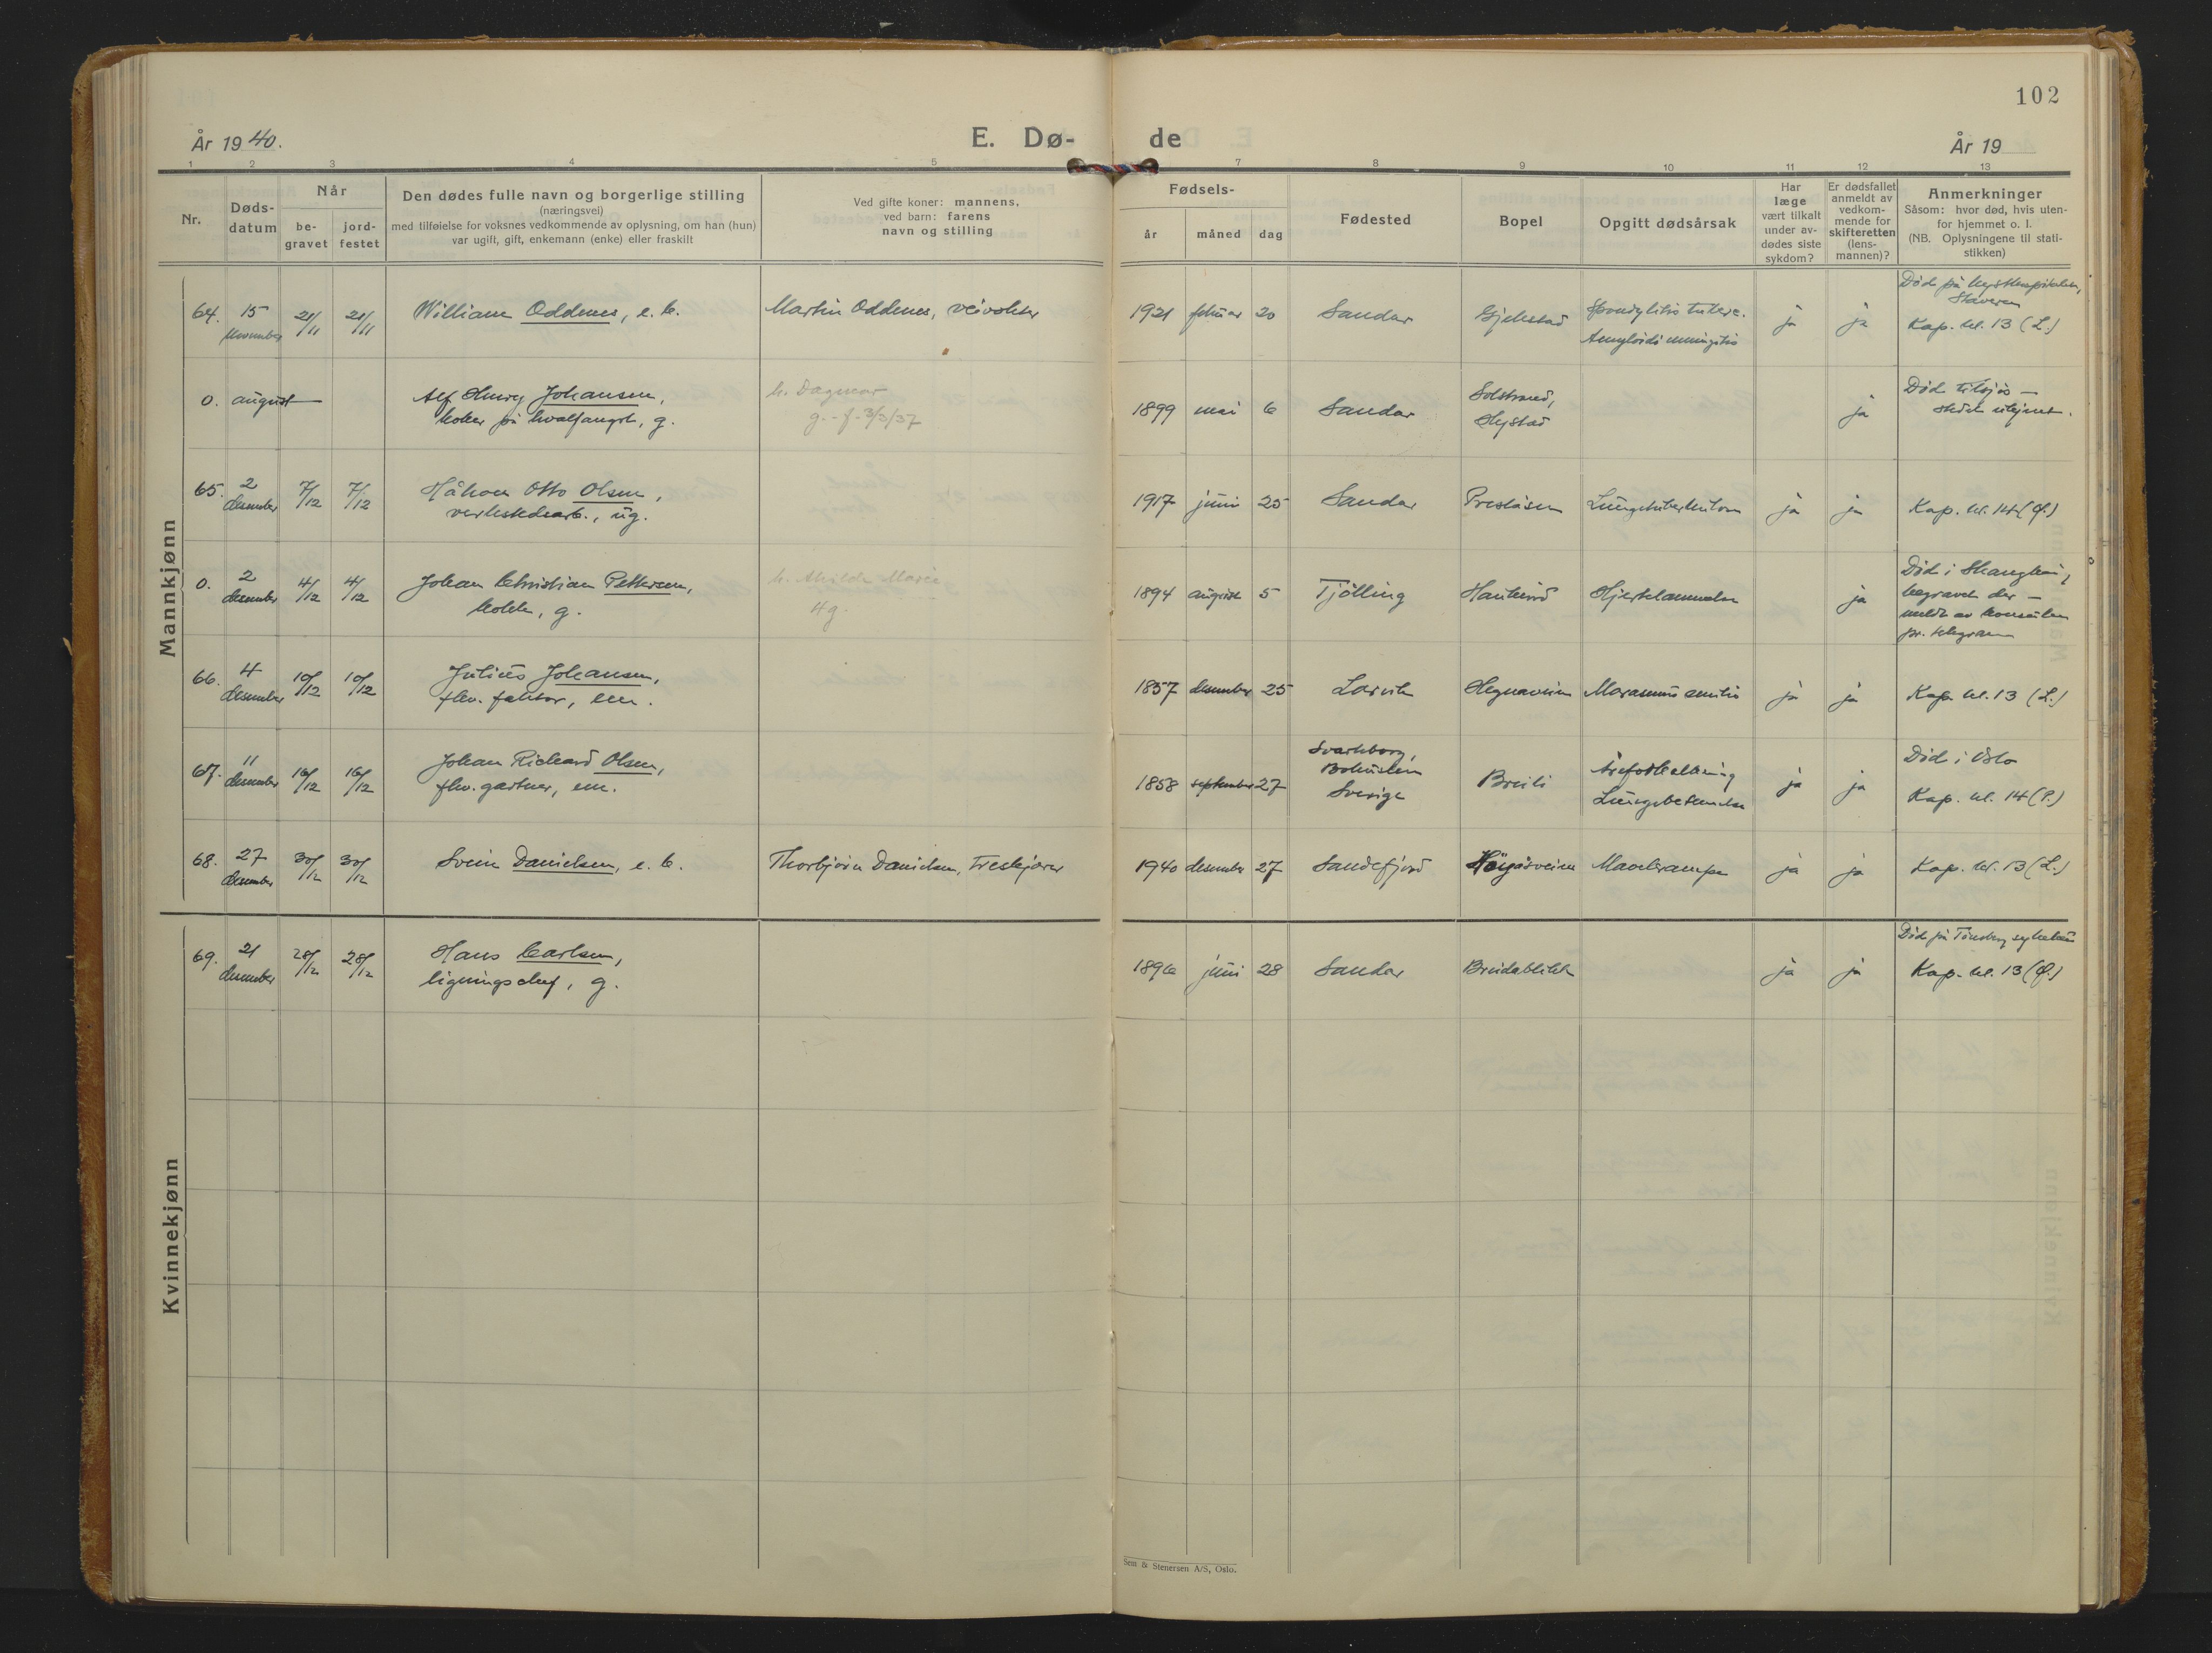 102
År 1940.
E. Dø-
de
År 19
1 2 3 4 5 7 8 9 10 11 12 13
Nr.
Døds-
datum
Når
be-
gravet
jord-
festet
Den dødes fulle navn og borgerlige stilling
(næringsvei)
med tilføielse for voksnes vedkommende av oplysning, om han (hun)
var ugift, gift, enkemann (enke) eller fraskilt
Ved gifte koner: mannens,
ved barn: farens
navn og stilling
Fødsels-
år
måned
dag
Fødested
Bopel
Opgitt dødsårsak
Har
læge
vært tilkalt
under av-
dødes siste
sykdom?
Er dødsfallet
anmeldt av
vedkom-
mende for
skifteretten
(lens-
mannen)?
Anmerkninger
Såsom: hvor død, hvis uten-
for hjemmet o. l.
(NB. Oplysningene til stati-
stikken)
Mannkjønn
64. 15 november 21/11 21/11 William Oddenes, e. b. Martin Oddenes, veivokter 1921 februar 20 Sandar Gjekstad Spondylitis tuberc. ja ja Død på kysthospitalet,
Stavern
Kap. kl. 13 (L.)
0. august Alf Henry Johansen, h. Dagmar 1899 mai 6 Sandar Solstrand, ja Død tilsjøs –
koker på hvalfangst, g. g. - f. 3/3/37 Hystad stedet ukjent.
65. 2 desember 7/12 7/12 Håkon Otto Olsen, 1917 juni 25 Sandar Preståsen Lungetuberkulose ja ja Kap. kl. 14 (Ø.)
verkstedarb., ug.
0. 2 desember 4/12 4/12 Johan Christian Pettersen, 1894 august 5 Tjølling Haukerød Hjertelammelse ja Død i Shanghai,
begravet der –
meldt av konsulen
pr. telegram
g.
66. 4 desember 10/12 10/12 Julius Johansen, 1857 desember 25 Larvik Hegnaveien Marasmus senilis ja ja Kap. kl. 13 (L.)
fhv. faktor, em.
67. 11 desember 16/12 16/12 Johan Richard Olsen, 1858 september 27 Svarteborg, Breili Åreforkalkning ja ja Død i Oslo
fhv. gartner, em. Bohuslen Lungebetennelse Kap. kl. 14 (P.)
Sverige
68. 27 desember 30/12 30/12 Svein Danielsen, e. b. Thorbjørn Danielsen, treskjærer 1940 desember 27 Sandefjord Høyåsveien Mavekrampe ja ja Kap. kl. 13 (L.)
69. 21 desember 28/12 28/12 Hans Carlsen, 1896 juni 28 Sandar Breidablikk ja ja Død på Tønsberg sykehus
ligningschef, g. Kap. kl. 13 (Ø.)
Kvinnekjønn
Sem & Stenersen A/S, Oslo.